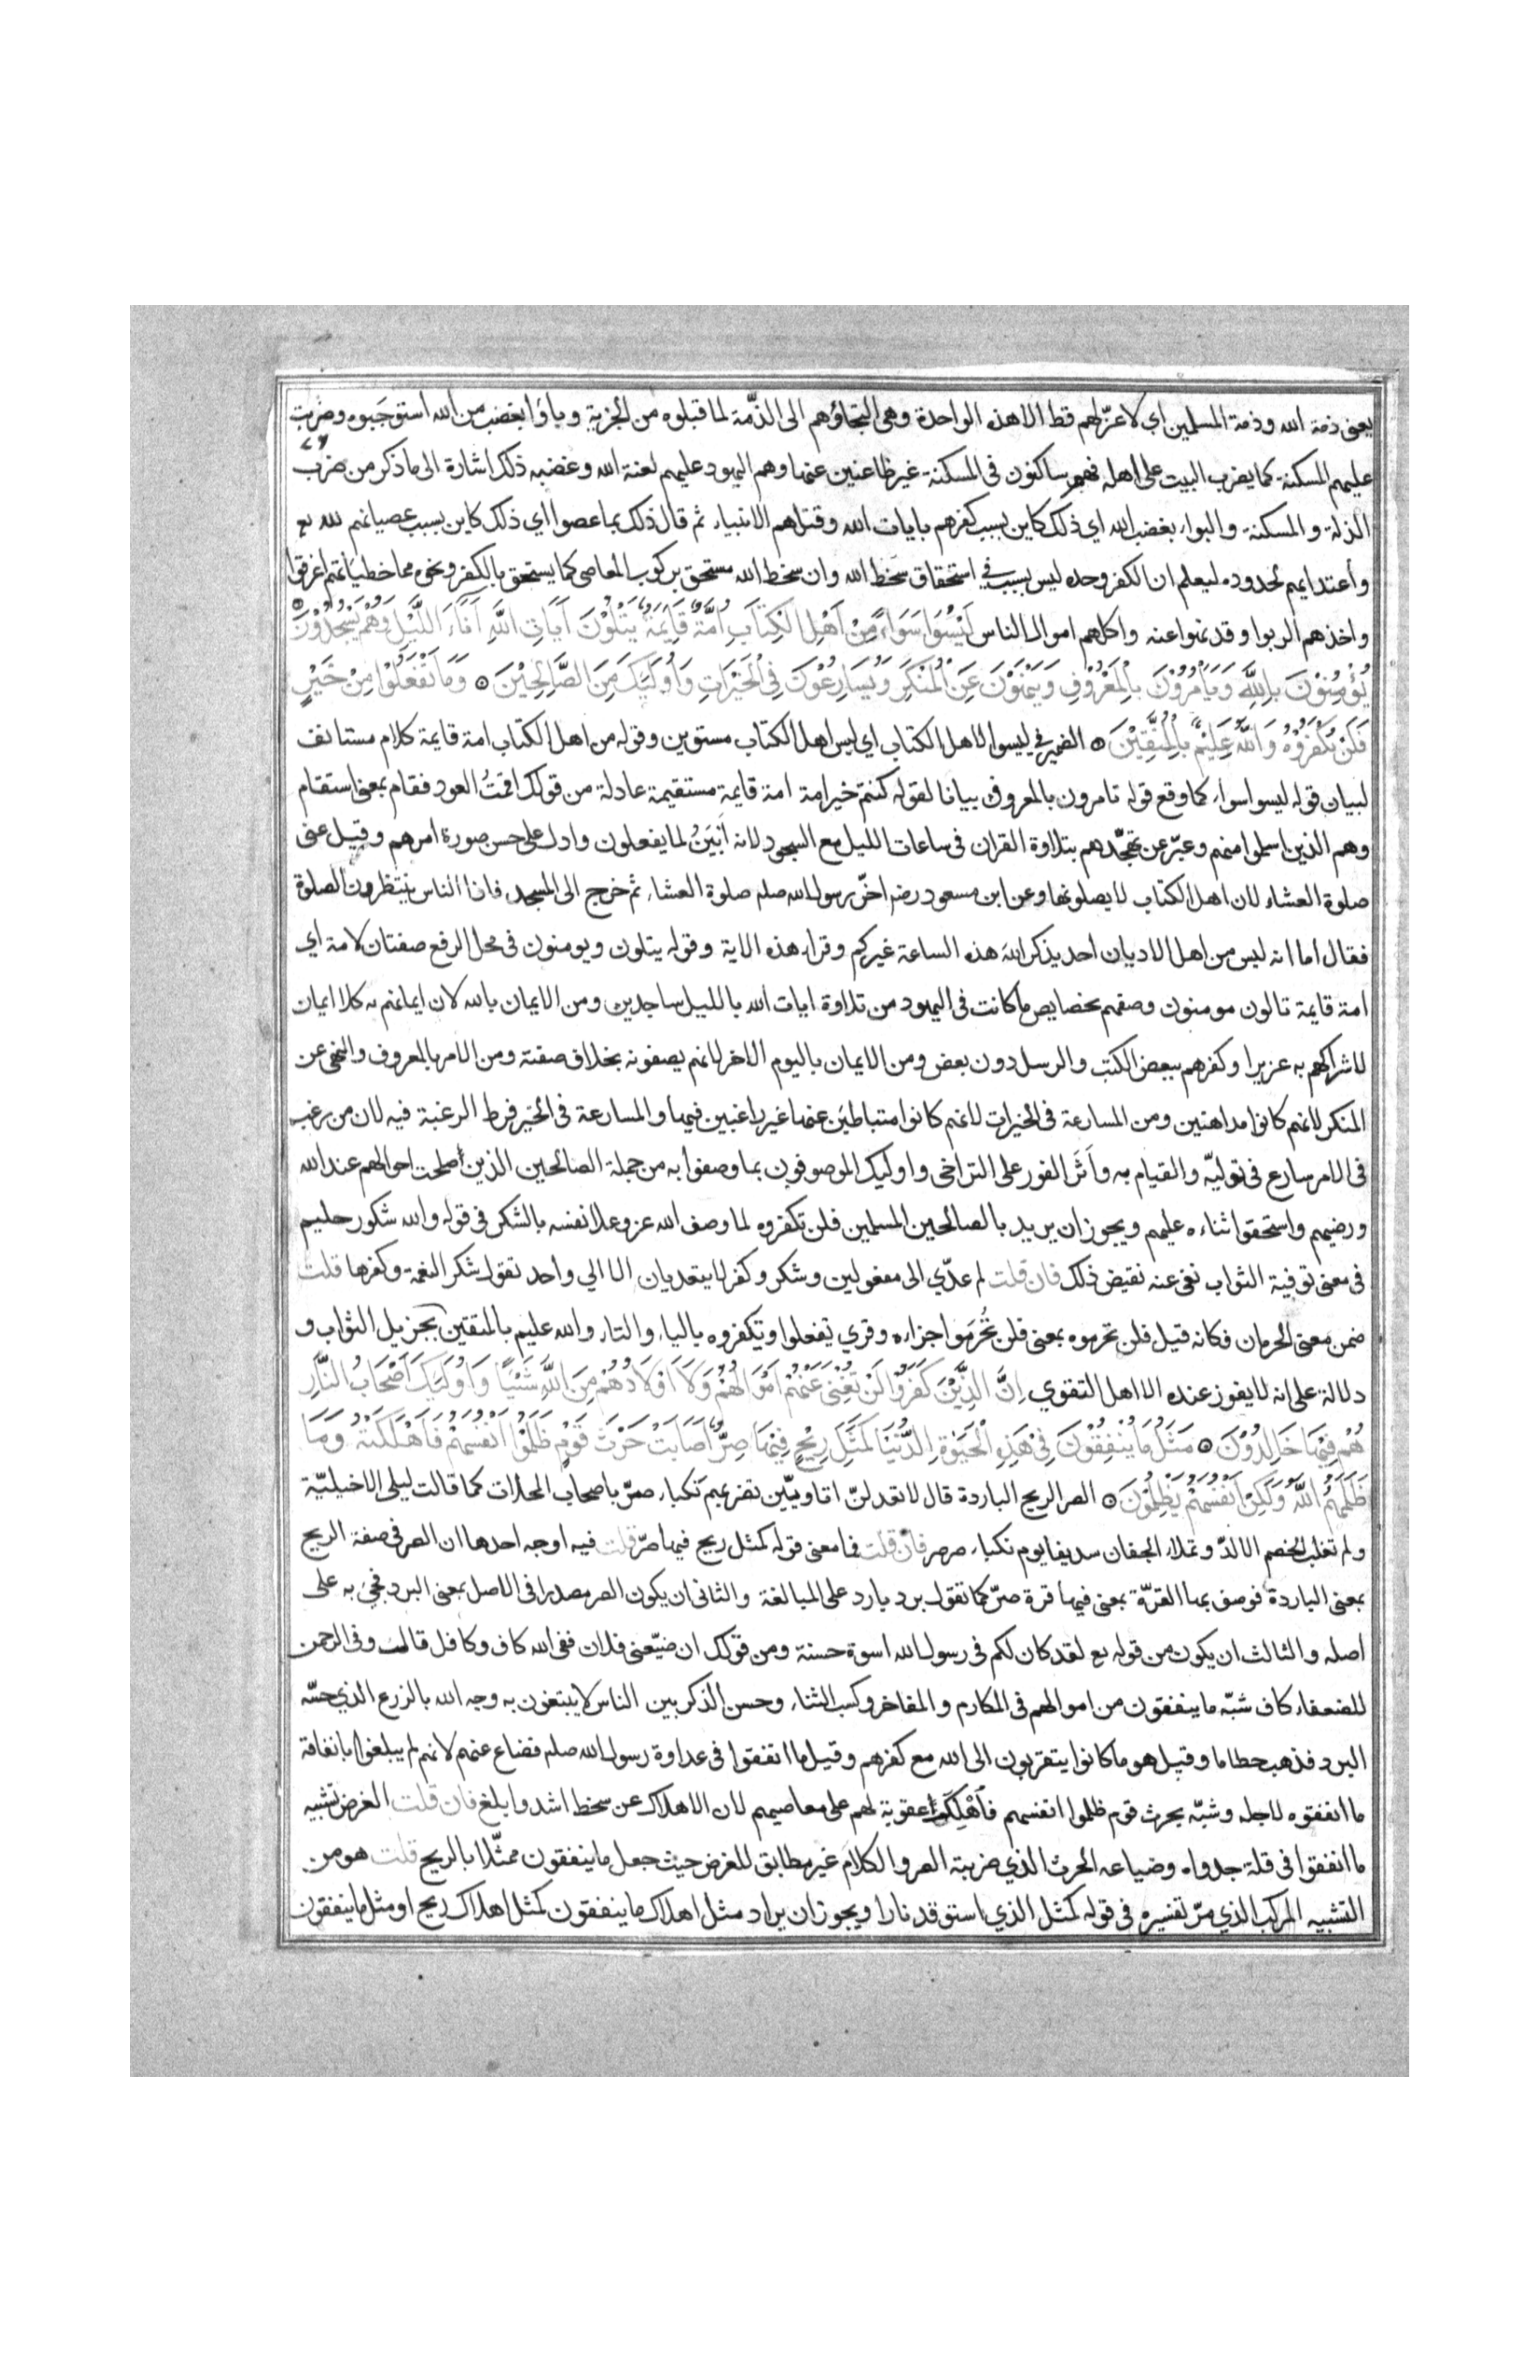 يعنى ذمة الله وذمة المسلمين اي لا عزّ لهم قط الا هذه الواحدة وهى التجاؤهم الى الذمّة لما قبلوه من الجزية وباؤا بغضب من الله استوجبوه وضربت
عليهم المسكنة كما يضرب البيت على اهله فهم ساكنون فى المسكنة غير ظاعنين عنها وهم اليهود عليهم لعنة الله وغضبه ذلك اشارة الى ما ذكر من ضرب
الذلة والمسكنة والبواء بغضب الله اي ذلك كاين بسبب كفرهم بايات الله وقتلهم الانبياء ثم قال ذلك بما عصوا اي ذلك كاين بسبب عصيانهم لله تع
وأعتدايهم لحدوده ليعلم ان الكفر وحده ليس بسبب في استحقاق سخط الله وان سخط الله مستحق بركوب المعاصى كما يستحق بالكفر ونحوه مما خطيئاتهم اغرقوا
واخذهم الربوا وقد نهوا عنه واكلهم اموال الناس لَيْسُوا سَوَاءً مِنْ اَهْلِ الْكِتَابِ اُمَّةٌ قَايِمَةٌ يَتْلُوْنَ آيَاتِ اللَّهِ آنَاءَ اللَّيْلِ وَهُمْ يَسْجُدُوْنَ
يُؤْمِنُوْنَ بِاللَّهِ وَيَأْمُرُوْنَ بِالْمَعْرُوْفِ وَيَنْهَوْنَ عَنِ الْمُنْكَرِ وَيُسَارِعُوْنَ فِى الْخَيْرَاتِ وَاُولَئِكَ مِنَ الصَّالِحِيْنَ ۝ وَمَا تَفْعَلُوْا مِنْ خَيْرٍ
فَلَنْ تُكْفَرُوْهُ وَاللَّهُ عَلِيْمٌ بِالْمُتَّقِيْنَ ۝ الضمير في ليسوا لاهل الكتاب اي ليس اهل الكتاب مستوين وقوله من اهل الكتاب امة قايمة كلام مستانف
لبيان قوله ليسوا سواء كما وقع قوله تامرون بالمعروف بيانا لقوله كنتم خير امة امة قايمة مستقيمة عادلة من قولك اقمتُ العود فقام بمعنى استقام
وهم الذين اسلموا منهم وعبّر عن تهجّدهم بتلاوة القران فى ساعات الليل مع السجود لانه أبْيَنُ لما يفعلون وادل على حسن صورة امرهم وقيل عنى
صلوة العشاء لان اهل الكتاب لا يصلونها وعن ابن مسعود رضه اخّر رسول الله صلم صلوة العشاء ثم خرج الى المسجد فاذا الناس ينتظرون الصلوة
فقال اما انه ليس من اهل الاديان احد يذكر الله هذه الساعة غيركم وقراء هذه الاية وقوله يتلون ويومنون فى محل الرفع صفتان لامة اي
امة قايمة تالون مومنون وصفهم بخصايص ما كانت فى اليهود من تلاوة ايات الله بالليل ساجدين ومن الايمان بالله لان ايمانهم به كلا ايمان
لاشراكهم به عزيرا وكفرهم ببعض الكتب والرسل دون بعض ومن الايمان باليوم الاخر لانهم يصفونه بخلاف صفته ومن الامر بالمعروف والنهى عن
المنكر لانهم كانوا مداهنين ومن المسارعة فى الخيرات لانهم كانوا متباطين عنها غير راغبين فيها والمسارعة فى الخير فرط الرغبة فيه لان من رغب
فى الامر سارع فى توليّه والقيام به وآثَرَ الفور على التراخى واوليك الموصوفون بما وصفوا به من جملة الصالحين الذين أصلحت احوالهم عند الله
ورضيهم واستحقوا ثناءه عليهم ويجوز ان يريد بالصالحين المسلمين فلن تكفروه لما وصف الله عز وعلا نفسه بالشكر فى قوله والله شكور حليم
فى معنى توفية الثواب نفى عنه نقيض ذلك فان قلت لم عدّي الى مفعولين وشكر وكفر لا يتعديان الا الي واحد تقول شكر النعمة وكفرها قلت
ضمن معنى الحرمان فكانه قيل فلن تحرموه بمعنى فلن تُحْرَموا جزاءه وقري يفعلوا ويكفروه بالياء والتاء والله عليم بالمتقين بجزيل الثواب و
دلالة على انه لا يفوز عنده الا اهل التقوي اِنَّ الَّذِيْنَ كَفَرُوْا لَنْ تُغْنِىَ عَنْهُمْ اَمْوَالُهُمْ وَلَا اَوْلَادُهُمْ مِنَ اللَّهِ شَيْئًا وَاُولَئِكَ اَصْحَابُ النَّارِ
هُمْ فِيْهَا خَالِدُوْنَ ۝ مَثَلُ مَا يُنْفِقُوْنَ فِىْ هَذِهِ الْحَيَوةِ الدُّنْيَا كَمَثَلِ رِيْحٍ فِيْهَا صِرٌّ اَصَابَتْ حَرْثَ قَوْمٍ ظَلَمُوْا اَنْفُسَهُمْ فَاَهْلَكَتْهُ وَمَا
ظَلَمَهُمُ اللَّهُ وَلَكِنْ اَنْفُسَهُمْ يَظْلِمُوْنَ ۝ الصر الريح الباردة قال لا تعدلنّ اتاويّين تضربهم نكباء صرّ باصحاب المحلات كما قالت ليلى الاخيليّة
ولم تغلب الخصم الالدّ وتملاء الجفان سديفا يوم نكباء صرصر فان قلت فما معنى قوله كمثل ريح فيها صرّ قلت فيه اوجه احدها ان الصر فى صفة الريح
بمعنى الباردة فوصف بها القرّة بمعنى فيها قرة صرّ كما تقول برد بارد على المبالغة والثانى ان يكون الصر مصدرا فى الاصل بمعنى البرد فجئ به على
اصله والثالث ان يكون من قوله تع لقد كان لكم فى رسول الله اسوة حسنة ومن قولك ان ضيّعنى فلان ففى الله كاف وكافل قالت وفى الرحمن
للضعفاء كاف شبّه ما ينفقون من اموالهم فى المكارم والمفاخر وكسب الثناء وحسن الذكر بين الناس لا يبتغون به وجه الله بالزرع الذي حسّه
البرد فذهب حطاما وقيل هو ما كانوا يتقربون الى الله مع كفرهم وقيل ما انفقوا فى عداوة رسول الله صلم فضاع عنهم لانهم لم يبلغوا بانفاقة
ما انفقوه لاجله وشبّه بحرث قوم ظلموا انفسهم فأُهْلِكَ عقوبة لهم على معاصيهم لان الاهلاك عن سخط اشد وابلغ فان قلت الغرض تشبيه
ما انفقوا فى قلة جدواه وضياعه الحرث الذي ضربته الصر والكلام غير مطابق للغرض حيث جعل ما ينفقون ممثّلا بالريح قلت هو من
التشبيه المركب الذي مرّ تفسيره فى قوله كمثل الذي استوقد نارا ويجوز ان يراد مثل اهلاك ما ينفقون كمثل اهلاك ريح او مثل ما ينفقون